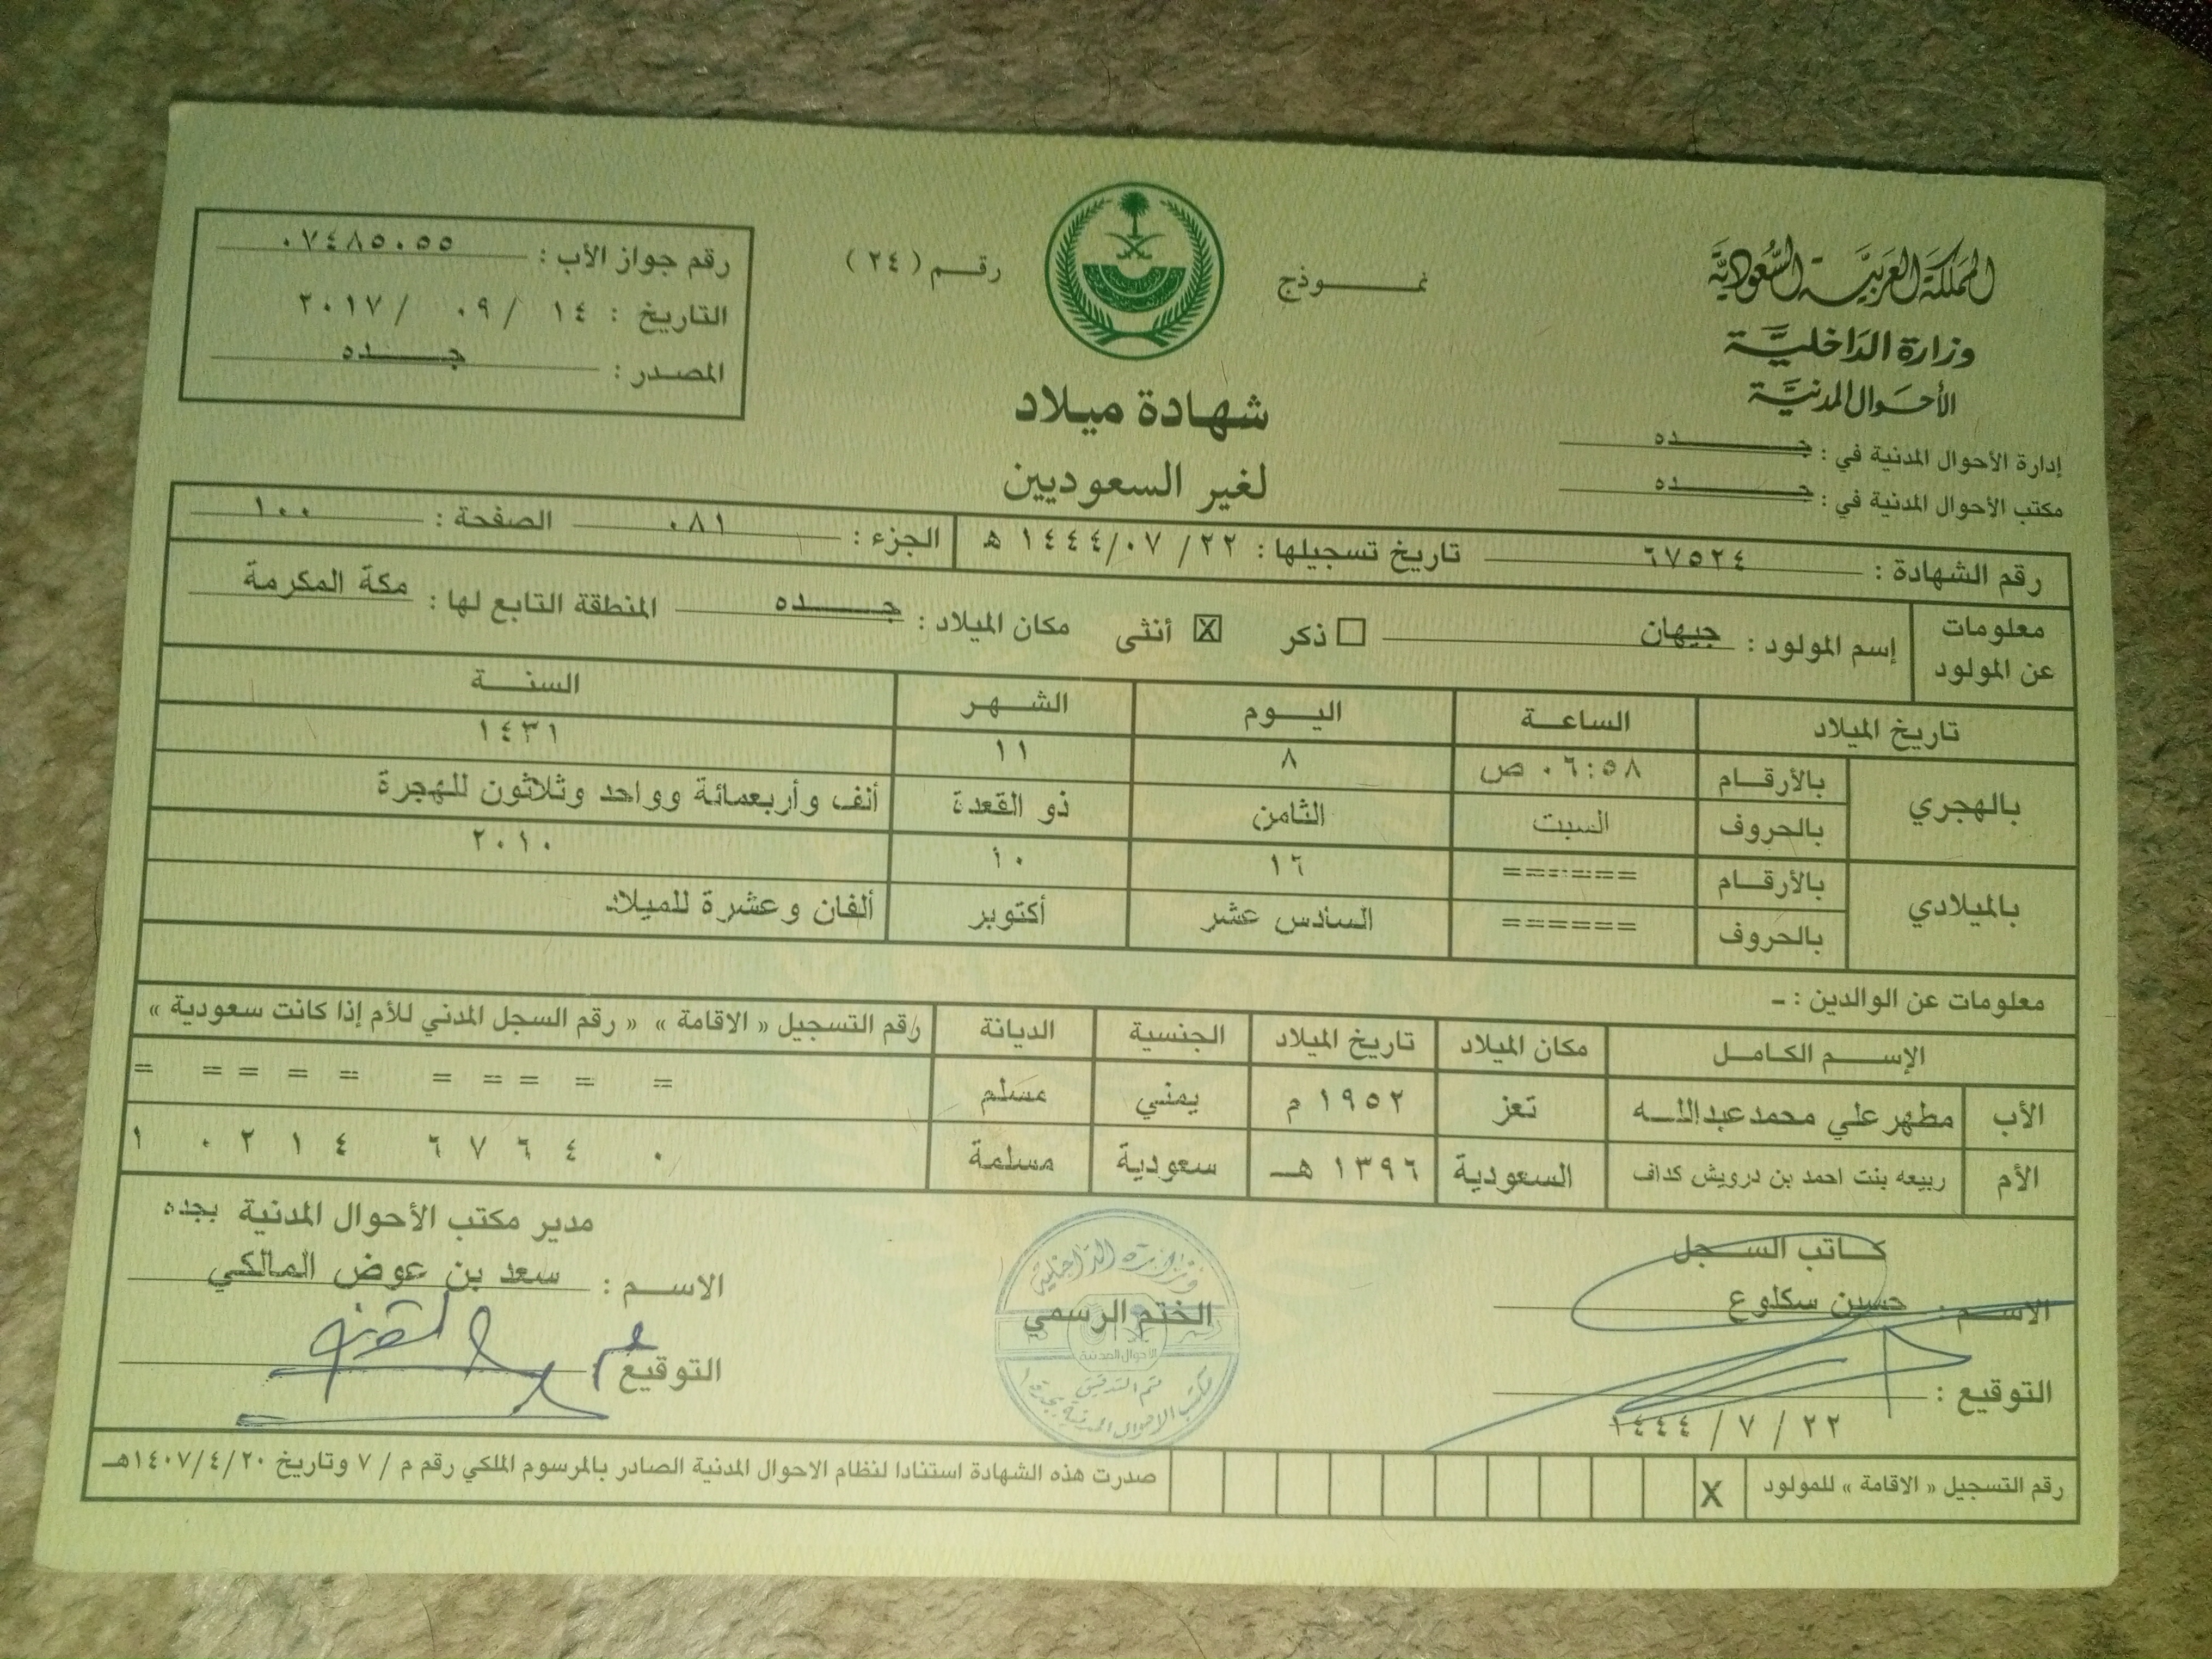 المملكة العربية السعودية
وزارة الداخلية
الأحوال المدنية
إدارة الأحوال المدنية في : جـــده
مكتب الأحوال المدنية في : جـــده
نمــوذج رقـم ( ٢٤ )
شهادة ميلاد
لغير السعوديين
رقم جواز الأب : ٠٧٤٨٥٠٥٥
التاريخ : ١٤ / ٠٩ / ٢٠١٧
المصدر : جـــده
رقم الشهادة : ٦٧٥٢٤ تاريخ تسجيلها : ٢٢ / ٠٧ / ١٤٤٤ هـ الجزء : ٠٨١ الصفحة : ١٠٠
معلومات عن المولود إسم المولود : جيهان ☐ ذكر ☒ أنثى مكان الميلاد : جـــده المنطقة التابع لها : مكة المكرمة
تاريخ الميلاد الساعـة اليــوم الشـهر السنــة
بالهجري بالأرقـام ٠٦:٥٨ ص ٨ ١١ ١٤٣١
بالحروف السبت الثامن ذو القعدة ألف وأربعمائة وواحد وثلاثون للهجرة
بالميلادي بالأرقـام ====== ١٦ ١٠ ٢٠١٠
بالحروف ====== السادس عشر أكتوبر ألفان وعشرة للميلاد
معلومات عن الوالدين : ـ
الإســم الكـامـل مكان الميلاد تاريخ الميلاد الجنسية الديانة رقم التسجيل « الاقامة » « رقم السجل المدني للأم إذا كانت سعودية »
الأب مطهر علي محمد عبدالله تعز ١٩٥٢ م يمني مسلم = = = = = = = = = =
الأم ربيعه بنت احمد بن درويش كداف السعودية ١٣٩٦ هـ سعودية مسلمة ١ ٠ ٢ ١ ٤ ٦ ٧ ٦ ٤ ٠
كـاتب السـجل
الاسـم : حسين سكلوع
التوقيع :
٢٢ / ٧ / ١٤٤٤
وزارة الداخلية
الختم الرسمي
الاحوال المدنية
تم التدقيق
مكتب الاحوال المدنية بجدة
مدير مكتب الأحوال المدنية بجده
الاسـم : سعد بن عوض المالكي
التوقيع :
رقم التسجيل « الاقامة » للمولود X
صدرت هذه الشهادة استنادا لنظام الاحوال المدنية الصادر بالمرسوم الملكي رقم م / ٧ وتاريخ ١٤٠٧/٤/٢٠هـ